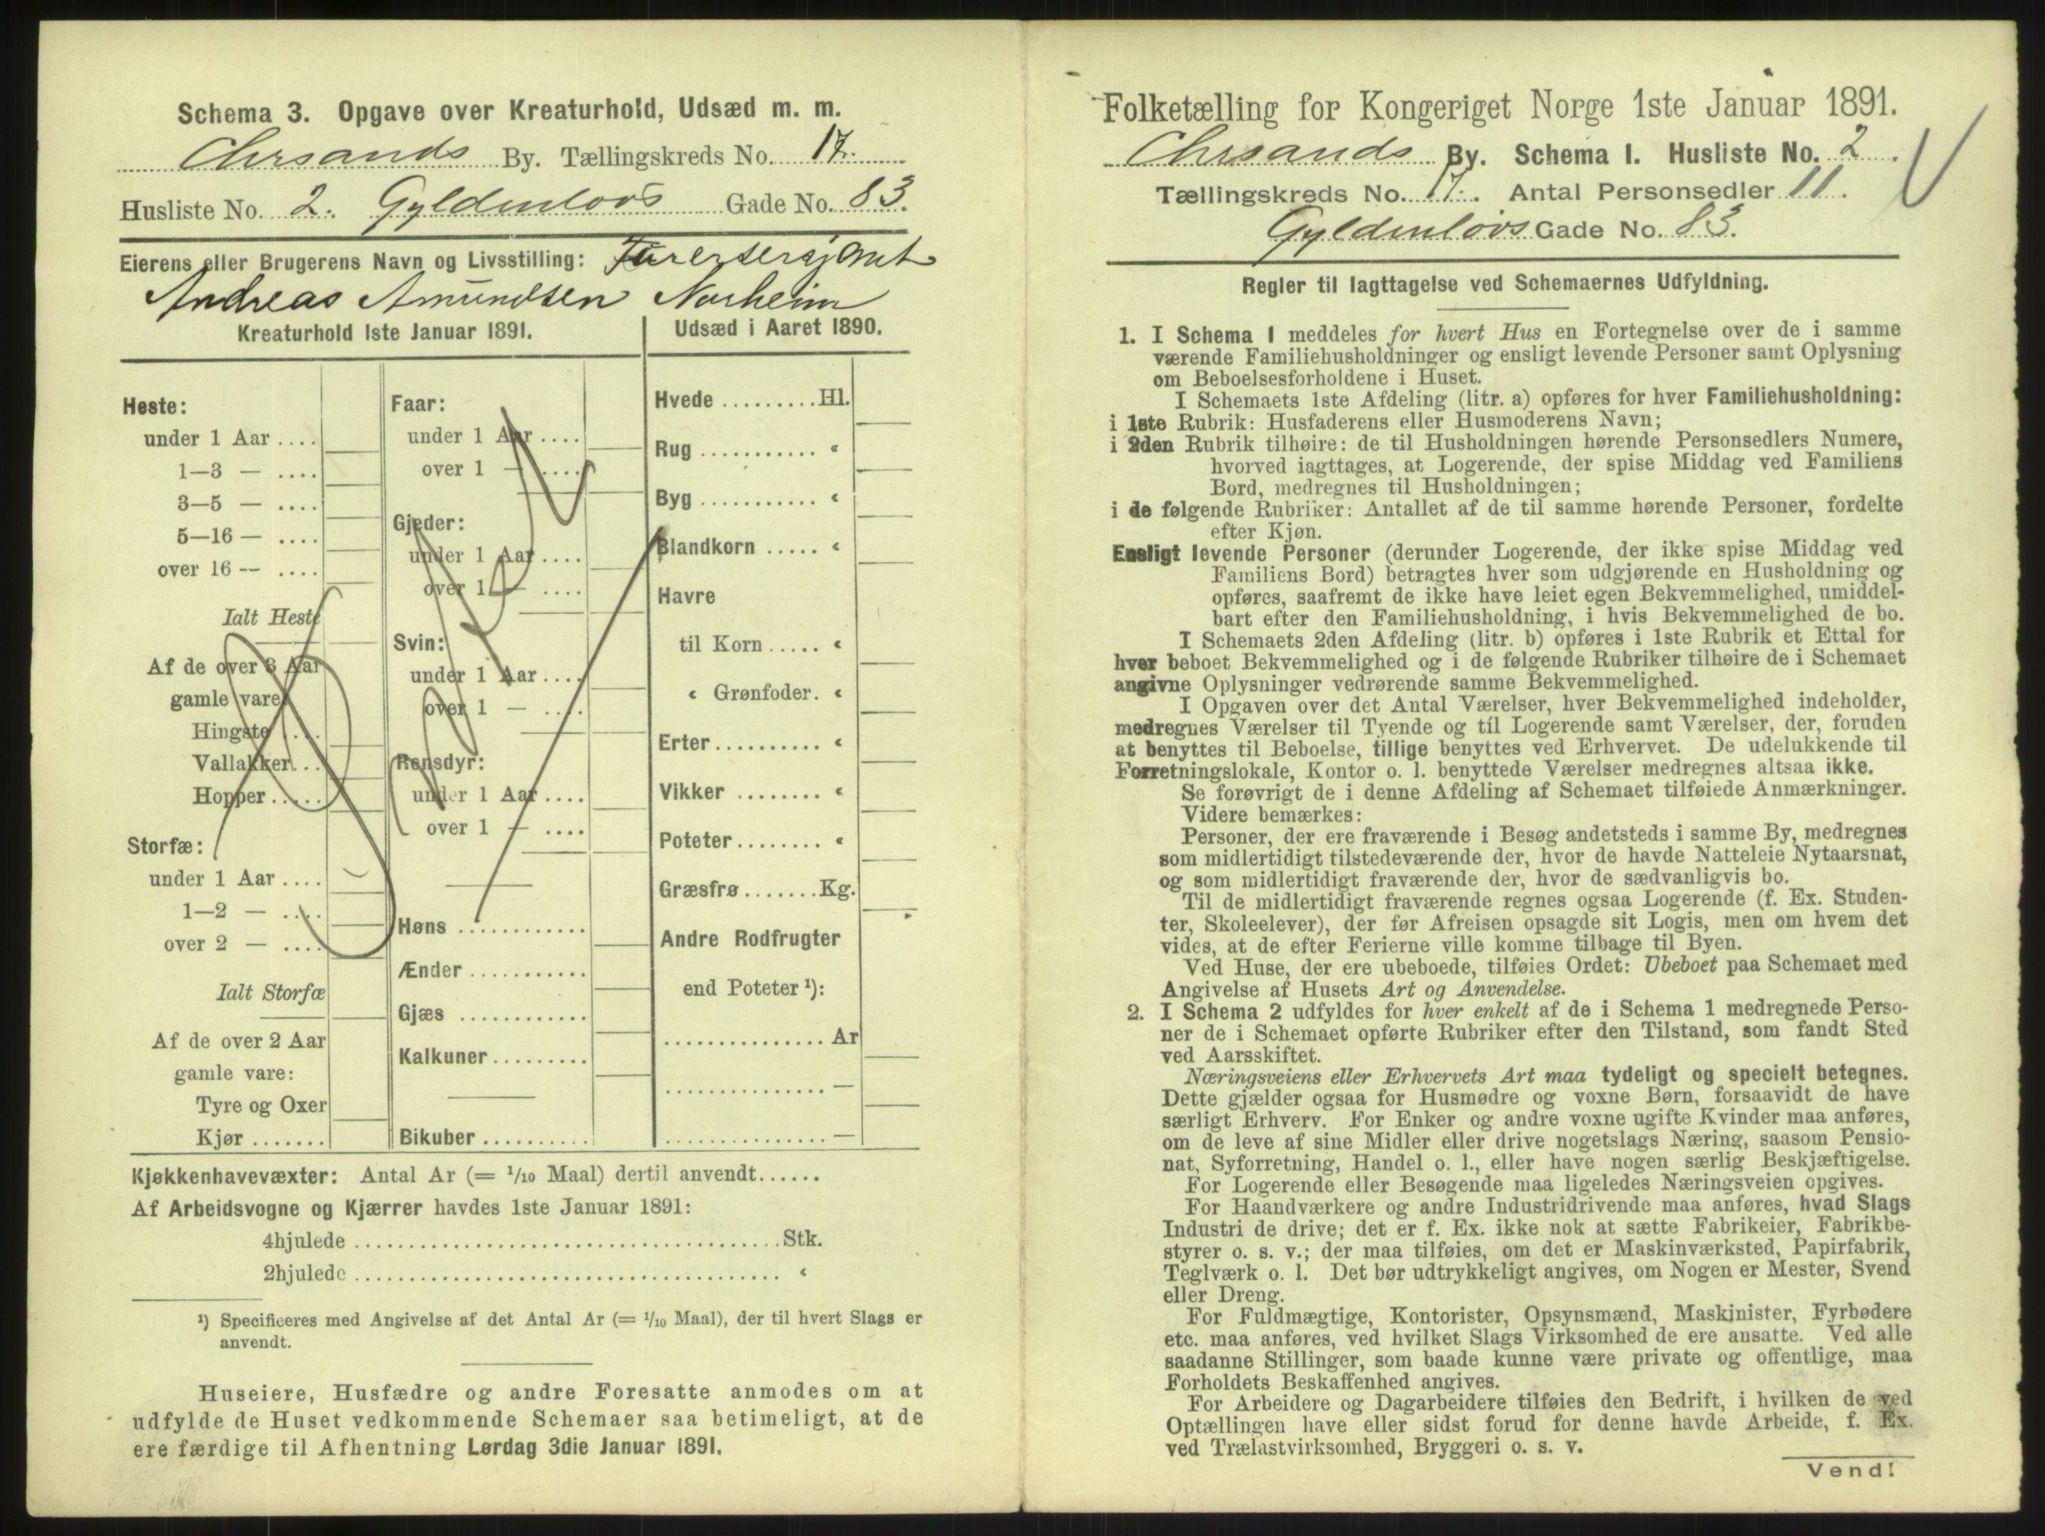 Schema 3. Opgave over Kreaturhold, Udsæd m. m.
Chrsands By. Tællingskreds No. 17.
Husliste No. 2. Gyldenløvs Gade No. 83.
Eierens eller Brugerens Navn og Livsstilling: Furersersjant
Andreas Amundsen Norheim
Kreaturhold 1ste Januar 1891.
Heste:
under 1 Aar ....
1—3 — ....
3—5 — ....
5—16 — ....
over 16 — ....
Ialt Heste
Af de over 3 Aar
gamle vare:
Hingste ....
Vallakker...
Hopper.....
Storfæ:
under 1 Aar ....
1—2 — ....
over 2 — ....
Ialt Storfæ
Af de over 2 Aar
gamle vare:
Tyre og Oxer
Kjør .......
Faar:
under 1 Aar ....
over 1 — ....
Gjeder:
under 1 Aar ....
over 1 — ....
Svin:
under 1 Aar ....
over 1 — ....
Rensdyr:
under 1 Aar ....
over 1 — ....
Høns ............
Ænder ...........
Gjæs ............
Kalkuner .........
Bikuber ..........
Udsæd i Aaret 1890.
Hvede .........Hl.
Rug ........... «
Byg ........... «
Blandkorn ..... «
Havre
til Korn ..... «
« Grønfoder. «
Erter.......... «
Vikker ........ «
Poteter........ «
Græsfrø .......Kg.
Andre Rodfrugter
end Poteter ¹):
............... Ar
............... —
............... —
Kjøkkenhavevæxter: Antal Ar (= 1/10 Maal) dertil anvendt......
Af Arbeidsvogne og Kjærrer havdes 1ste Januar 1891:
4hjulede ........................................Stk.
2hjulede ........................................ «
¹) Specificeres med Angivelse af det Antal Ar (= 1/10 Maal), der til hvert Slags er
anvendt.
Huseiere, Husfædre og andre Foresatte anmodes om at
udfylde de Huset vedkommende Schemaer saa betimeligt, at de
ere færdige til Afhentning Lørdag 3die Januar 1891.
Folketælling for Kongeriget Norge 1ste Januar 1891.
Chrsands By. Schema 1. Husliste No. 2.
Tællingskreds No. 17. Antal Personsedler 11.
Gyldenløvs Gade No. 83.
Regler til Iagttagelse ved Schemaernes Udfyldning.
1. I Schema 1 meddeles for hvert Hus en Fortegnelse over de i samme
værende Familiehusholdninger og ensligt levende Personer samt Oplysning
om Beboelsesforholdene i Huset.
I Schemaets 1ste Afdeling (litr. a) opføres for hver Familiehusholdning:
i 1ste Rubrik: Husfaderens eller Husmoderens Navn;
i 2den Rubrik tilhøire: de til Husholdningen hørende Personsedlers Numere,
hvorved iagttages, at Logerende, der spise Middag ved Familiens
Bord, medregnes til Husholdningen;
i de følgende Rubriker: Antallet af de til samme hørende Personer, fordelte
efter Kjøn.
Ensligt levende Personer (derunder Logerende, der ikke spise Middag ved
Familiens Bord) betragtes hver som udgjørende en Husholdning og
opføres, saafremt de ikke have leiet egen Bekvemmelighed, umiddel-
bart efter den Familiehusholdning, i hvis Bekvemmelighed de bo.
I Schemaets 2den Afdeling (litr. b) opføres i 1ste Rubrik et Ettal for
hver beboet Bekvemmelighed og i de følgende Rubriker tilhøire de i Schemaet
angivne Oplysninger vedrørende samme Bekvemmelighed.
I Opgaven over det Antal Værelser, hver Bekvemmelighed indeholder,
medregnes Værelser til Tyende og til Logerende samt Værelser, der, foruden
at benyttes til Beboelse, tillige benyttes ved Erhvervet. De udelukkende til
Forretningslokale, Kontor o. l. benyttede Værelser medregnes altsaa ikke.
Se forøvrigt de i denne Afdeling af Schemaet tilføiede Anmærkninger.
Videre bemærkes:
Personer, der ere fraværende i Besøg andetsteds i samme By, medregnes
som midlertidigt tilstedeværende der, hvor de havde Natteleie Nytaarsnat,
og som midlertidigt fraværende der, hvor de sædvanligvis bo.
Til de midlertidigt fraværende regnes ogsaa Logerende (f. Ex. Studen-
ter, Skoleelever), der før Afreisen opsagde sit Logis, men om hvem det
vides, at de efter Ferierne ville komme tilbage til Byen.
Ved Huse, der ere ubeboede, tilføies Ordet: Ubeboet paa Schemaet med
Angivelse af Husets Art og Anvendelse.
2. I Schema 2 udfyldes for hver enkelt af de i Schema 1 medregnede Perso-
ner de i Schemaet opførte Rubriker efter den Tilstand, som fandt Sted
ved Aarsskiftet.
Næringsveiens eller Erhvervets Art maa tydeligt og specielt betegnes.
Dette gjælder ogsaa for Husmødre og voxne Børn, forsaavidt de have
særligt Erhverv. For Enker og andre voxne ugifte Kvinder maa anføres,
om de leve af sine Midler eller drive nogetslags Næring, saasom Pensio-
nat, Syforretning, Handel o. l., eller have nogen særlig Beskjæftigelse.
For Logerende eller Besøgende maa ligeledes Næringsveien opgives.
For Haandværkere og andre Industridrivende maa anføres, hvad Slags
Industri de drive; det er f. Ex. ikke nok at sætte Fabrikeier, Fabrikbe-
styrer o. s. v.; der maa tilføies, om det er Maskinværksted, Papirfabrik,
Teglværk o. l. Det bør udtrykkeligt angives, om Nogen er Mester, Svend
eller Dreng.
For Fuldmægtige, Kontorister, Opsynsmænd, Maskinister, Fyrbødere
etc. maa anføres, ved hvilket Slags Virksomhed de ere ansatte. Ved alle
saadanne Stillinger, som baade kunne være private og offentlige, maa
Forholdets Beskaffenhed angives.
For Arbeidere og Dagarbeidere tilføies den Bedrift, i hvilken de ved
Optællingen have eller sidst forud for denne havde Arbeide, f. Ex.
ved Trælastvirksomhed, Bryggeri o. s. v.
Vend!